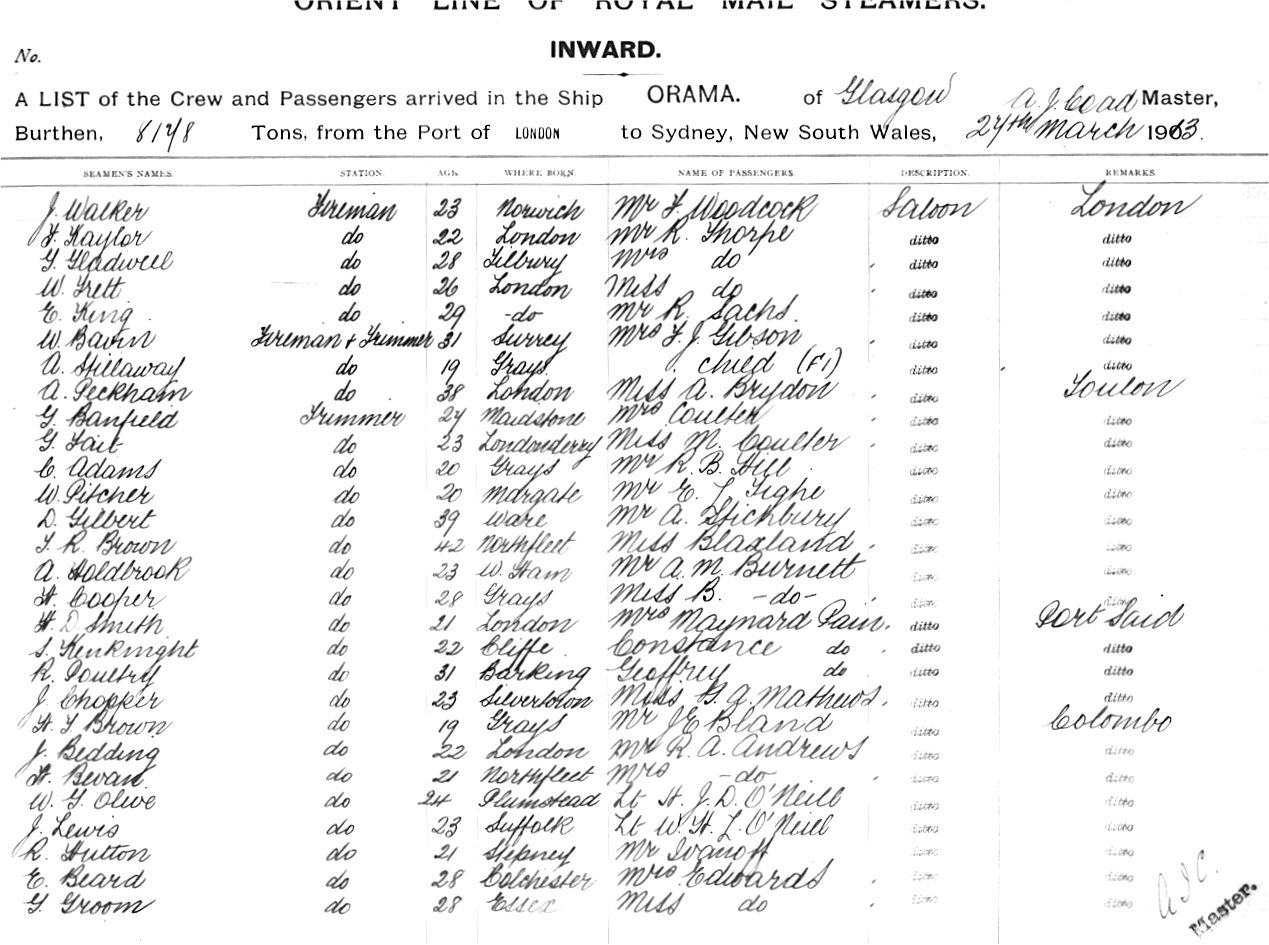 ORIENT LINE OF ROYAL MAIL STEAMERS.
No.
INWARD.
A LIST of the Crew and Passengers arrived in the Ship ORAMA. of Glasgow A. J. Coad Master,
Burthen, 8178 Tons, from the Port of LONDON to Sydney, New South Wales, 27th March 1913.
SEAMEN'S NAMES. STATION. AGE. WHERE BORN. NAME OF PASSENGERS. DESCRIPTION. REMARKS.
J. Walker Fireman 23 Norwich Mr F. Woodcock Saloon London
F. Kaylor do 22 London Mr R. Thorpe ditto ditto
G. Gladwell do 28 Tilbury Mrs do ditto ditto
W. Trett do 26 London Miss do ditto ditto
E. King do 29 -do Mr R. Sachs. ditto ditto
W. Bavin Fireman & Trimmer 31 Surrey Mrs F. J. Gibson ditto ditto
A. Hillaway do 19 Grays. child (F1) ditto ditto
A. Peckham do 38 London Miss A. Brydon ditto Toulon
G. Banfield Trimmer 27 Maidstone Mrs Coulter ditto ditto
G. Tait do 23 Londonderry Miss M. Coulter ditto ditto
C. Adams do 20 Grays Mr R. B. Hill ditto ditto
W. Pitcher do 20 Margate Mr E. L. Tighe ditto ditto
D. Gilbert do 39 Ware Mr A. Stichbury ditto ditto
T. R. Brown do 42 Northfleet Miss Blaxland ditto ditto
A. Holdbrook do 23 W. Ham Mr A. M. Burnett ditto ditto
H. Cooper do 28 Grays Miss B. -do- ditto ditto
H. D. Smith do 21 London Mrs Maynard Pain. ditto Port Said
S. Kenknight do 22 Cliffe Constance do ditto ditto
R. Poultry do 31 Barking Geoffrey do ditto ditto
J. Chopker do 23 Silvertown Miss G. A. Mathews. ditto ditto
H. T. Brown do 19 Grays Mr J E Bland ditto Colombo
J. Bedding do 22 London Mr R. A. Andrews ditto ditto
H. Bevan do 21 Northfleet Mrs -do ditto ditto
W. G. Olive do 24 Plumstead Lt H. J. D. O'Neill ditto ditto
J. Lewis do 23 Suffolk Lt W. H. L. O'Neill ditto ditto
R. Hutton do 21 Stepney Mr Ivanoff ditto ditto
E. Beard do 28 Colchester Mrs Edwards ditto ditto
G. Groom do 28 Essex Miss do ditto ditto
A J C.
Master.